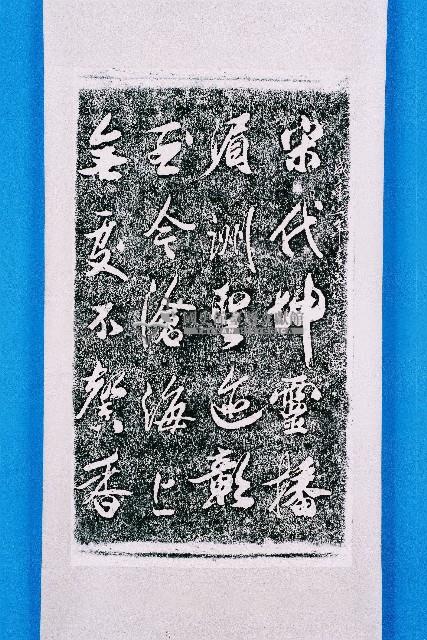 宋代坤靈播
湄洲聖迹彰
至今滄海上
無處不馨香